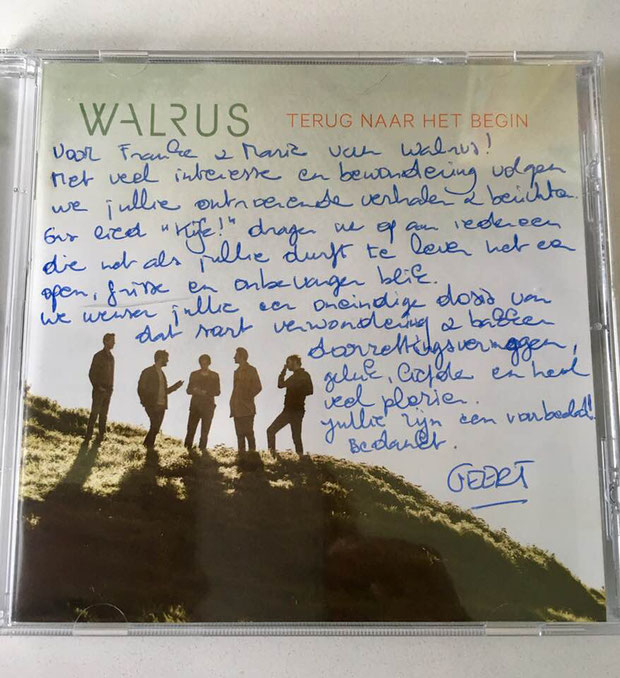 WALRUS TERUG NAAR HET BEGIN
Voor Franke & Marie van Walrus!
Met veel interesse en bewondering volgen
we jullie ontroerende verhalen & berichten.
Ons lied "Hje!" dragen we op aan iedereen
die net als jullie durft te leven met een
open, frisse en onbevangen blik.
we wensen jullie een oneindige dosis van
dat soort verwondering & bakken
doorzettingsvermogen,
geluk, liefde en heel
veel plezier.
jullie zijn een voorbeeld!
Bedankt.
GEERT